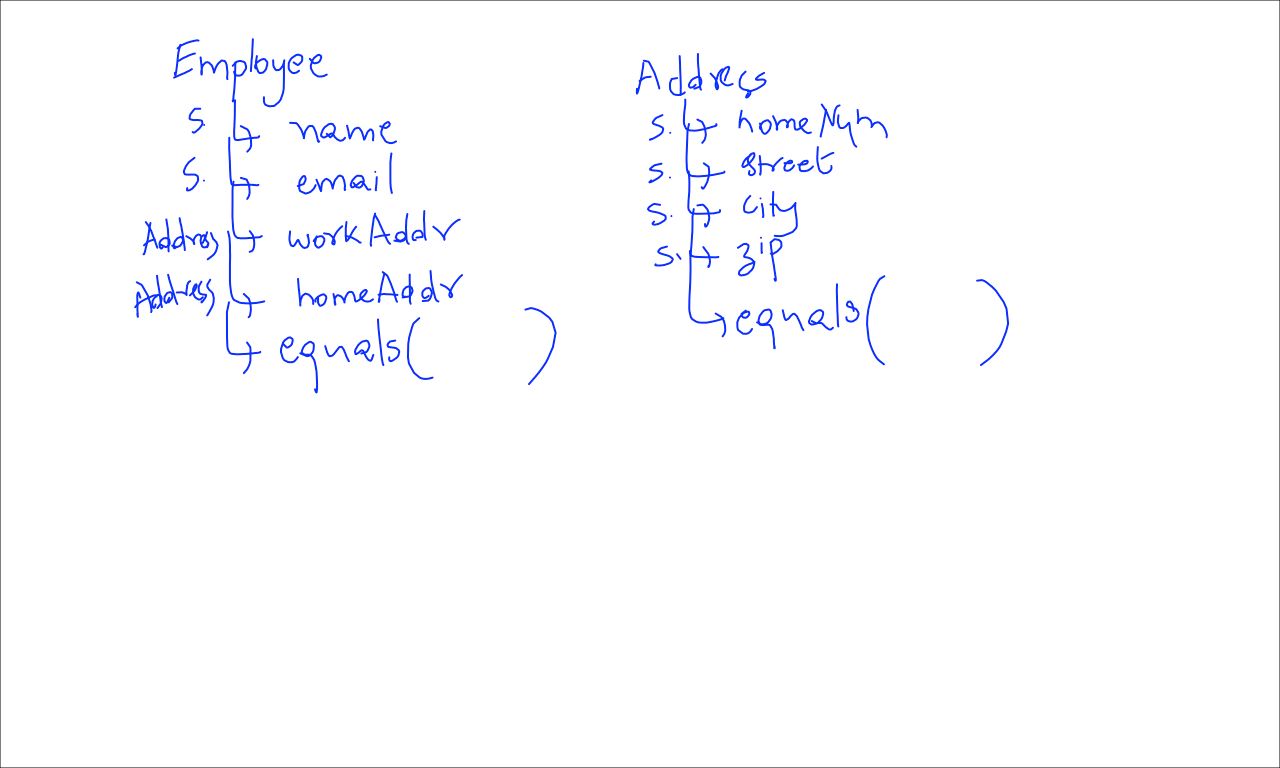 Employee
S. name
S. email
Address workAddr
Address homeAddr
equals( )
Address
S. homeNum
S. street
S. city
S. zip
equals( )